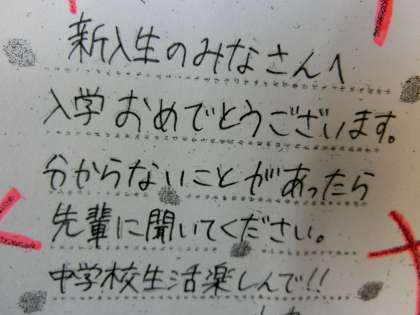 新入生のみなさんへ
入学おめでとうございます。
分からないことがあったら
先輩に聞いてください。
中学校生活楽しんで!!